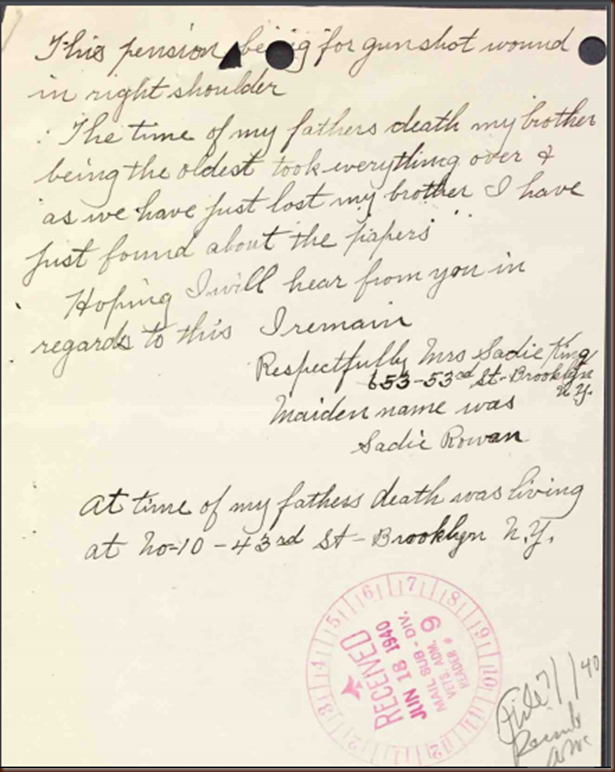 This pension being for gunshot wound
in right shoulder
The time of my fathers death my brother
being the oldest took everything over &
as we have just lost my brother I have
just found about the papers
Hoping I will hear from you in
regards to this I remain
Respectfully Mrs Sadie King
653-53rd St-Brooklyn
N.Y.
Maiden name was
Sadie Rowan
At time of my fathers death was living
at No-10-43rd St-Brooklyn N.Y.
RECEIVED
JUN 18 1940
MAIL SUB-DIV.
VETS ADM.
READER # 9
File 7/1/40